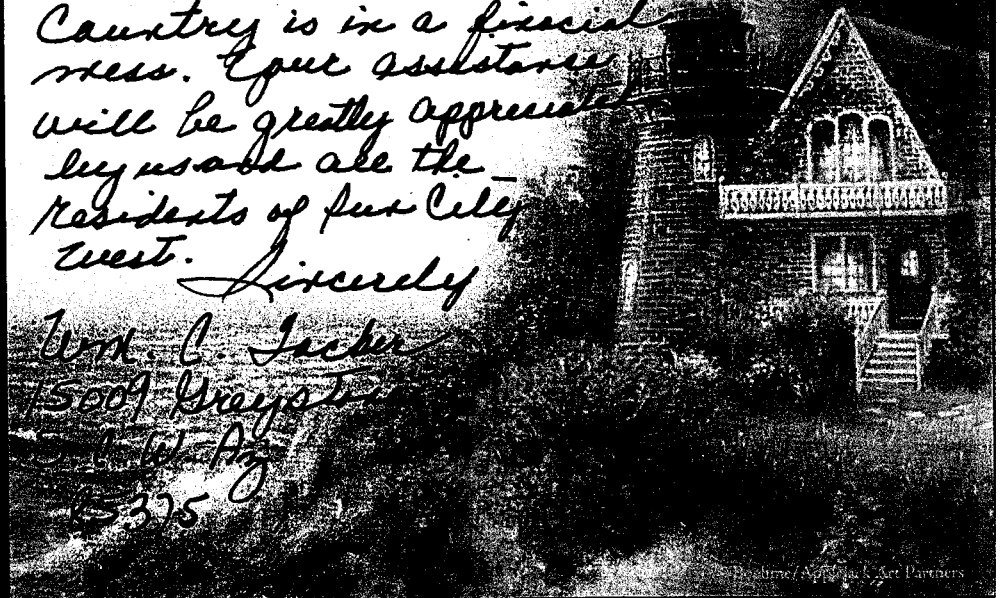 Country is in a finacial
mess. Your assistance
will be greatly appreciated
by us and all the
residents of Sun City
West.
Sincerely
Wm. C. Tacker
15009 Greystone
S. C. W. Az
85375
/Applejack Art Partners